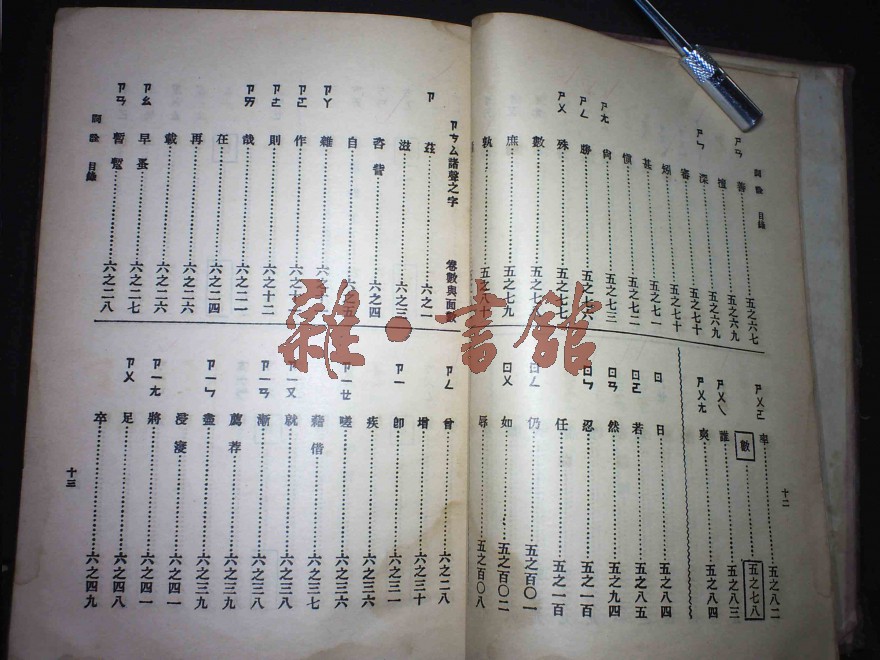 詞詮 目錄
ㄕㄢ 善 五之六七
擅 五之六九
ㄕㄣ 深 五之六九
審 五之七十
矧 五之七十
甚 五之七一
慎 五之七二
ㄕㄤ 尙 五之七三
ㄕㄥ 勝
ㄕㄨ 殊 五之七七
數
庶 五之七九
孰 五之八十
ㄕㄨㄛ 率 五之八二
數 五之七八
ㄕㄨㄟ 誰 五之八三
ㄕㄨㄤ 爽 五之八四
ㄖ 日 五之八四
ㄖㄛ 若 五之八五
ㄖㄢ 然 五之九四
ㄖㄣ 忍 五之一百
任 五之一百
ㄖㄥ 仍 五之百〇一
ㄖㄨ 如 五之百〇二
辱 五之百〇八
十二
ㄗㄘㄙ諸聲之字 卷數與面數
ㄗ 茲 六之一
滋 六之三
咨 訾 六之四
自 六之五
ㄗㄚ 雜
ㄗㄛ 作
ㄗㄜ 則 六之十二
ㄗㄞ 哉 六之二一
在 六之二四
再 六之二六
載 六之二六
ㄗㄠ 早 蚤 六之二七
ㄗㄢ 暫 六之二八
詞詮 目錄
ㄗㄥ 曾 六之二八
增 六之三十
ㄗㄧ 卽 六之三一
疾 六之三六
ㄗㄧㄝ 嗟 六之三六
藉 借 六之三七
ㄗㄧㄡ 就 六之三八
ㄗㄧㄢ 漸 六之三八
薦 荐 六之三九
ㄗㄧㄣ 盡 六之三九
浸 寖 六之四一
ㄗㄧㄤ 將 六之四一
ㄗㄨ 足 六之四八
卒 六之四九
十三
雜·書館